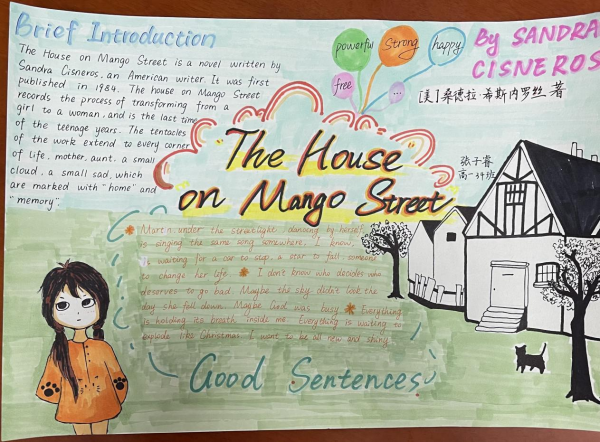 Brief Introduction
The House on Mango Street is a novel written by
Sandra Cisneros, an American writer. It was first
published in 1984. The house on Mango Street
records the process of transforming from a
girl to a woman, and is the last time
of the teenage years. The tentacles
of the work extend to every corner
of life, mother, aunt, a small
cloud, a small sad, which
are marked with "home" and
"memory".
powerful
Strong
happy
free
...
By SANDRA
CISNEROS
[美]桑德拉·希斯内罗丝 著
The House
on Mango Street
张子睿
高一39班
Martin under the streetlight dancing by herself,
is singing the same song somewhere. I know,
is waiting for a car to stop, a star to fall, someone
to change her life. I don't know who decides who
deserves to go bad. Maybe the sky didn't look the
day she fell down. Maybe God was busy. Everything
is holding its breath inside me. Everything is waiting to
explode like Christmas. I want to be all new and shiny.
Good Sentences